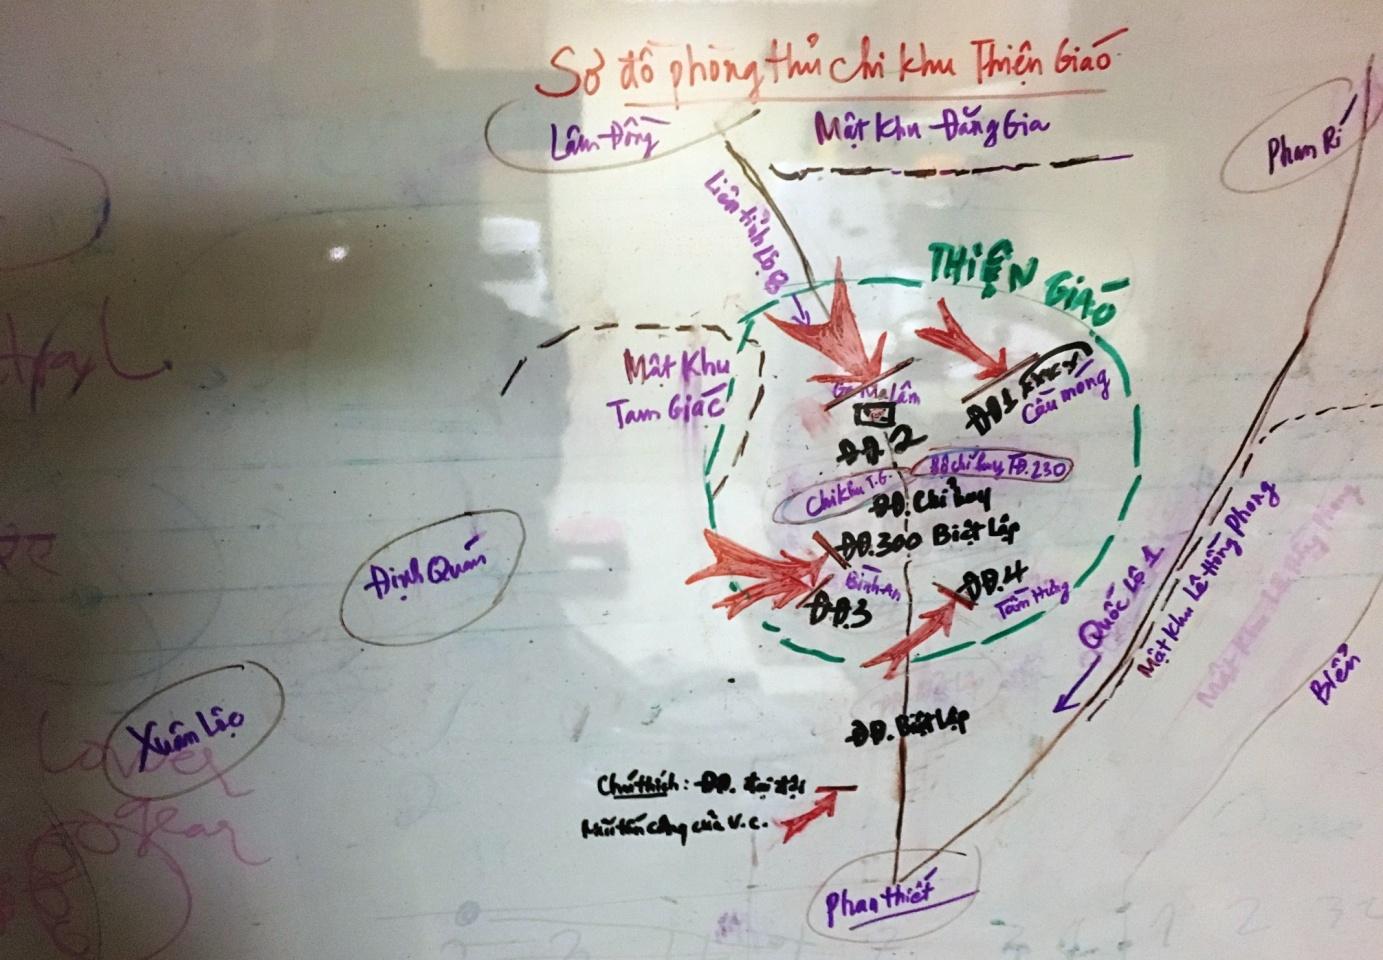 Sơ đồ phòng thủ chi khu Thiện Giáo
Lâm Đồng
Mật Khu Đăng Gia
Phan Rí
Liên tỉnh lộ 8
THIỆN GIÁO
Mật Khu
Tam Giác
Ga Ma Lâm
ĐĐ1
Cầu móng
ĐĐ.2
Chi khu T.G.
Bộ chỉ huy TĐ.230
ĐĐ. Chỉ huy
ĐĐ.300 Biệt Lập
Định Quán
Bình An
ĐĐ.4
ĐĐ.3
Tầm Hưng
Quốc Lộ 1
Mật Khu Lê Hồng Phong
Biển
Xuân Lộc
ĐĐ. Biệt Lập
Chú thích: ĐĐ. đại đội
Mũi tấn công của V.C.
Phan Thiết